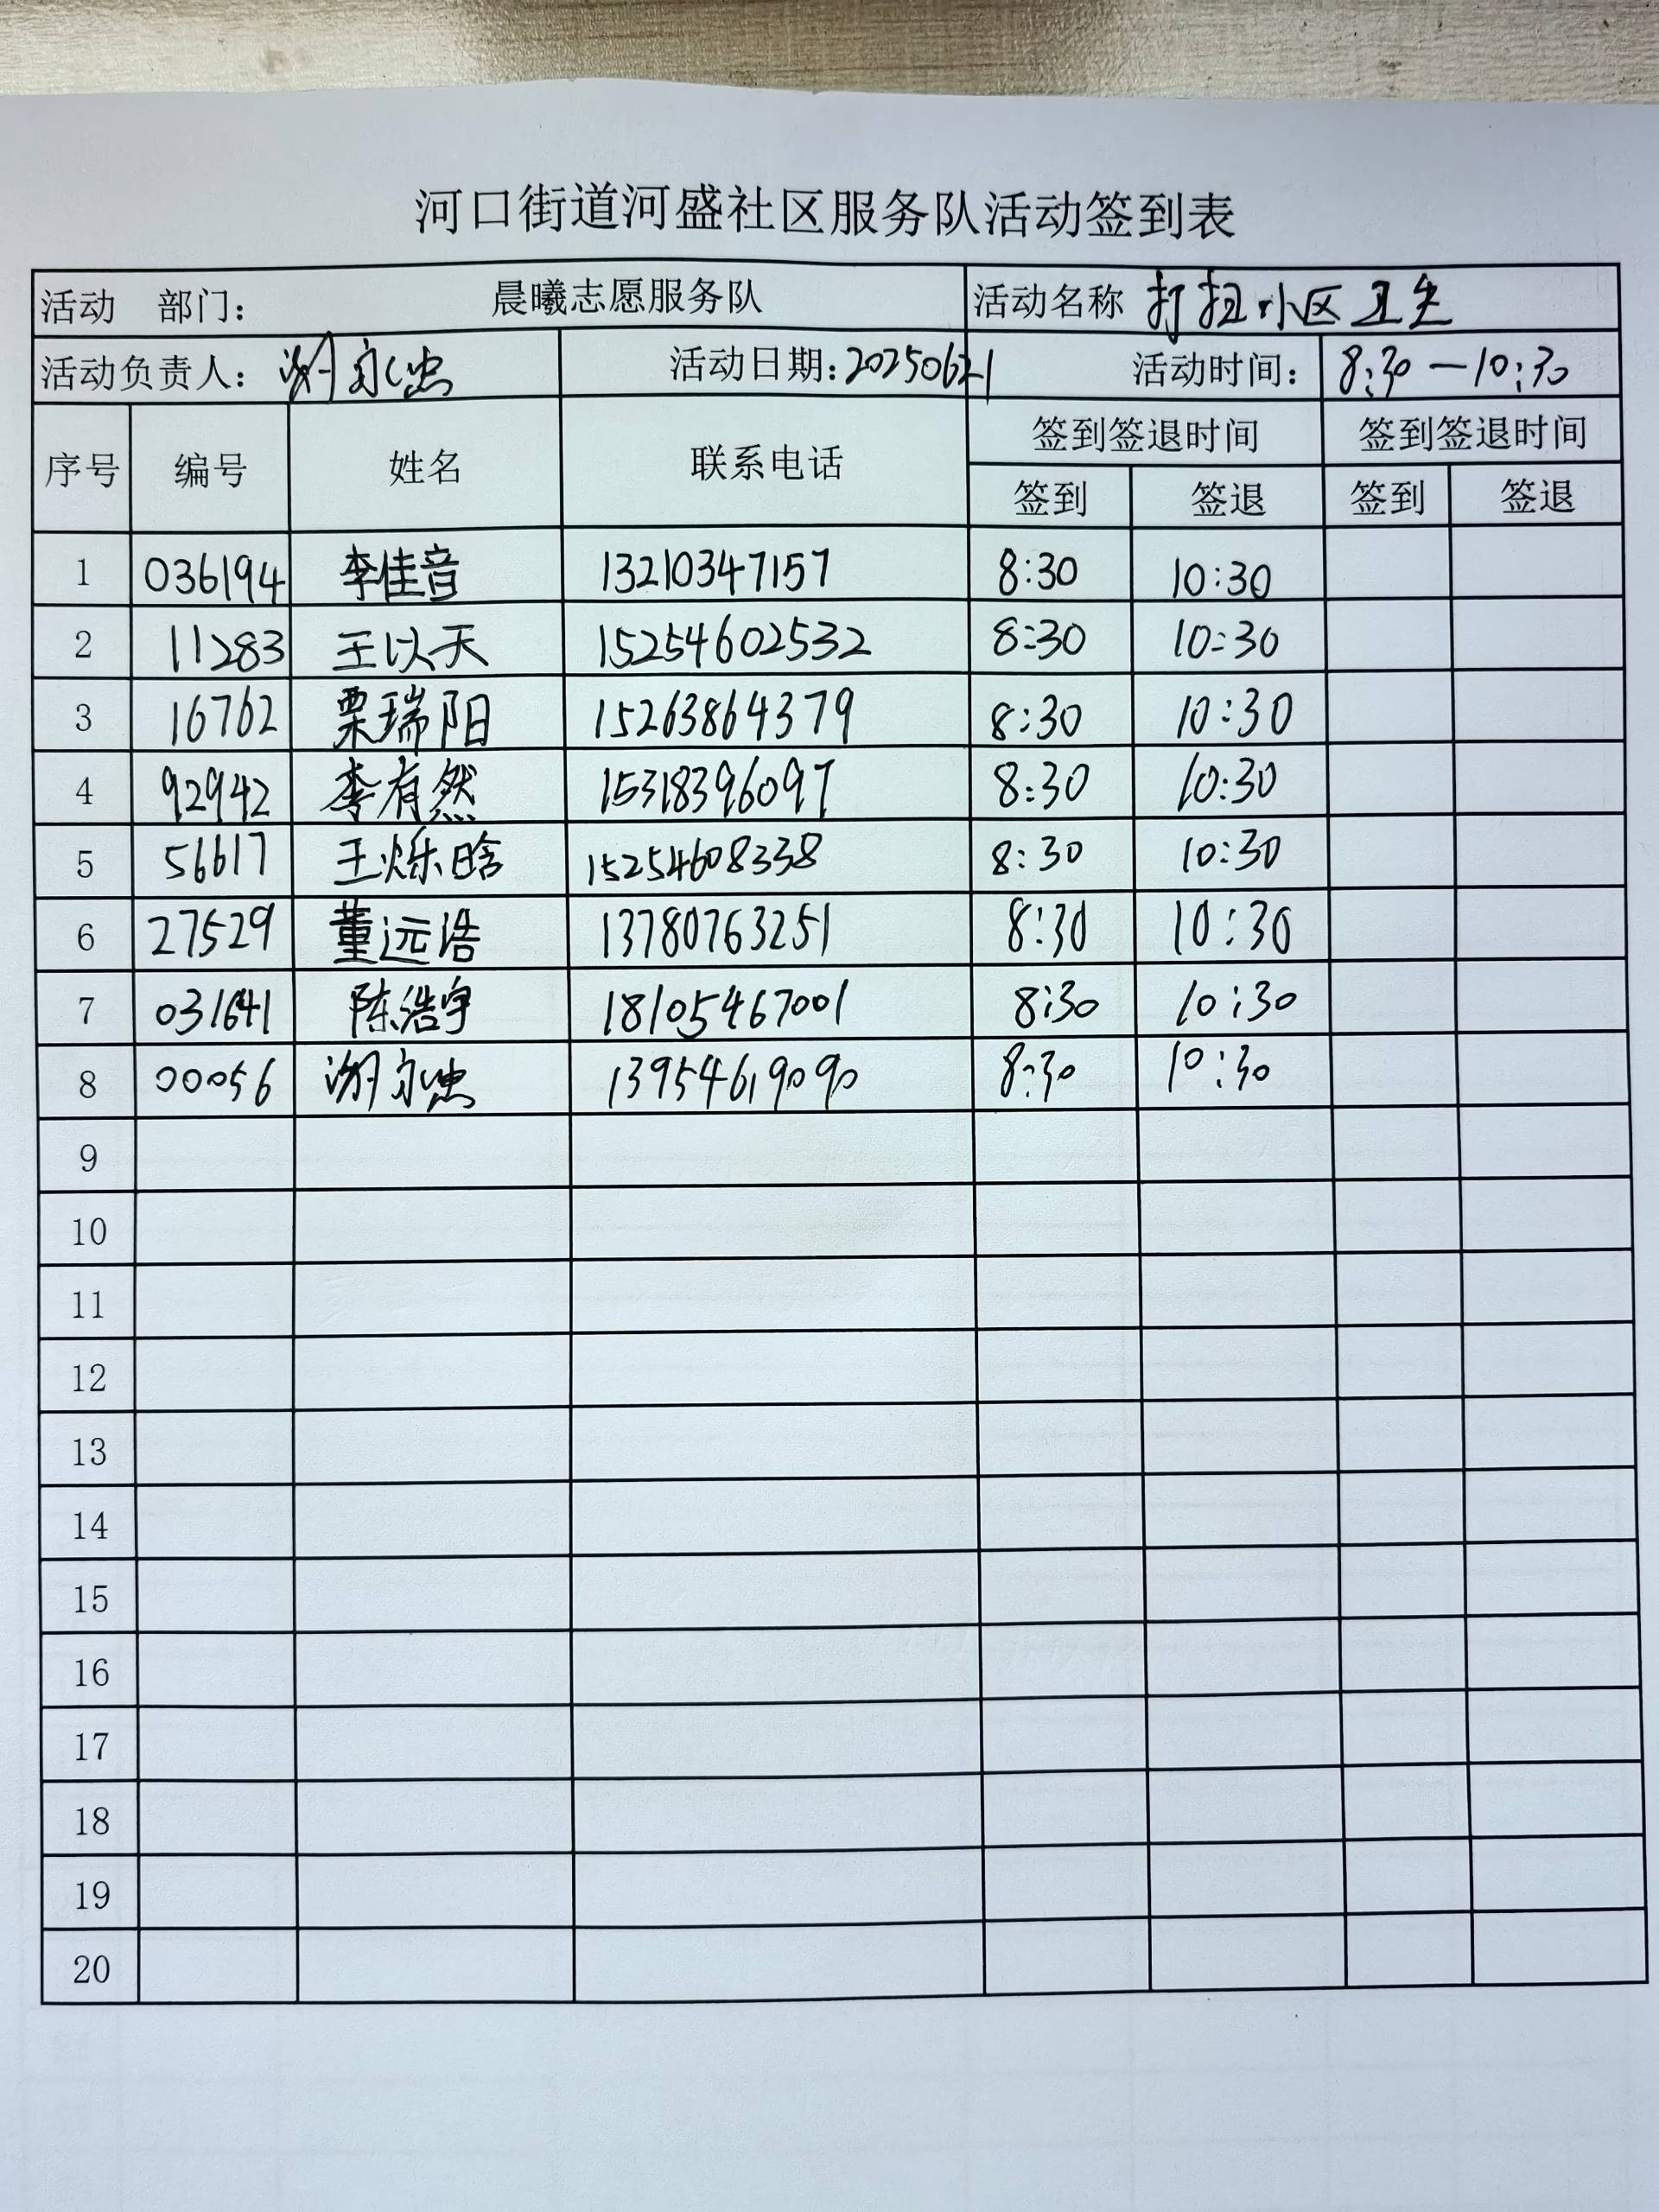 河口街道河盛社区服务队活动签到表
活动 部门： 晨曦志愿服务队 活动名称 打扫小区卫生
活动负责人：谢永忠 活动日期：20250621 活动时间： 8:30—10:30
序号 编号 姓名 联系电话 签到签退时间 签到签退时间
签到 签退 签到 签退
1 036194 李佳音 13210347157 8:30 10:30
2 11283 王以天 15254602532 8:30 10:30
3 16762 栗瑞阳 15263864379 8:30 10:30
4 92942 李有然 15318396097 8:30 10:30
5 56617 王烁晗 15254608338 8:30 10:30
6 27529 董远浩 13780763251 8:30 10:30
7 031641 陈浩宇 18105467001 8:30 10:30
8 00056 谢永忠 13954619090 8:30 10:30
9
10
11
12
13
14
15
16
17
18
19
20